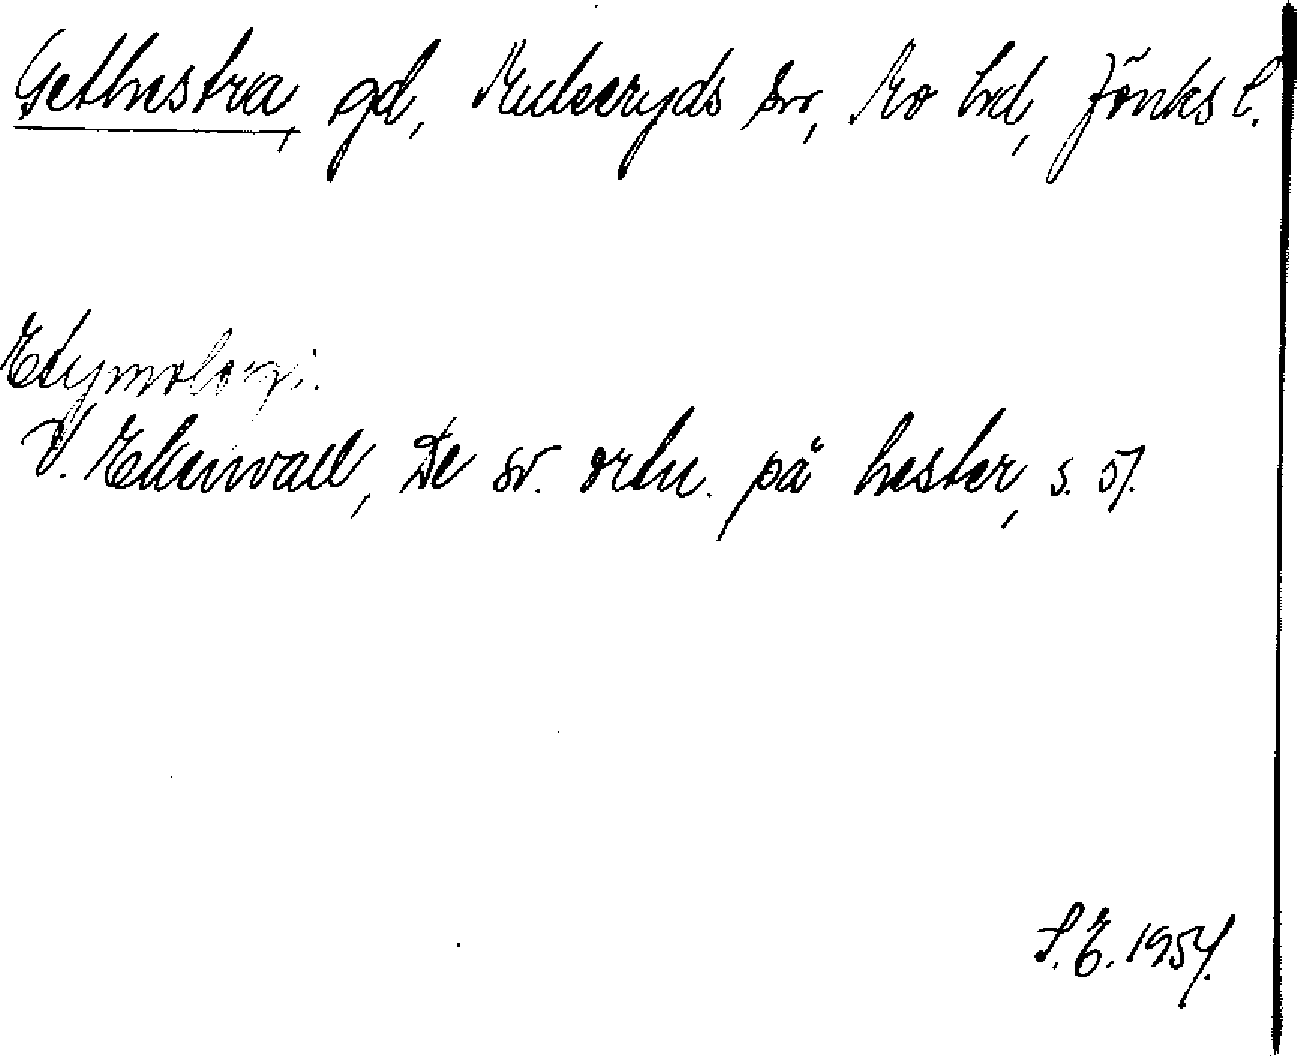 Gethestra, gd, Mulseryds sn, Mo hd, Jönks l.
Etymologi.
V. Ekenvall, De sv. ortn. på hester, s. 57.
S. E. 1954.